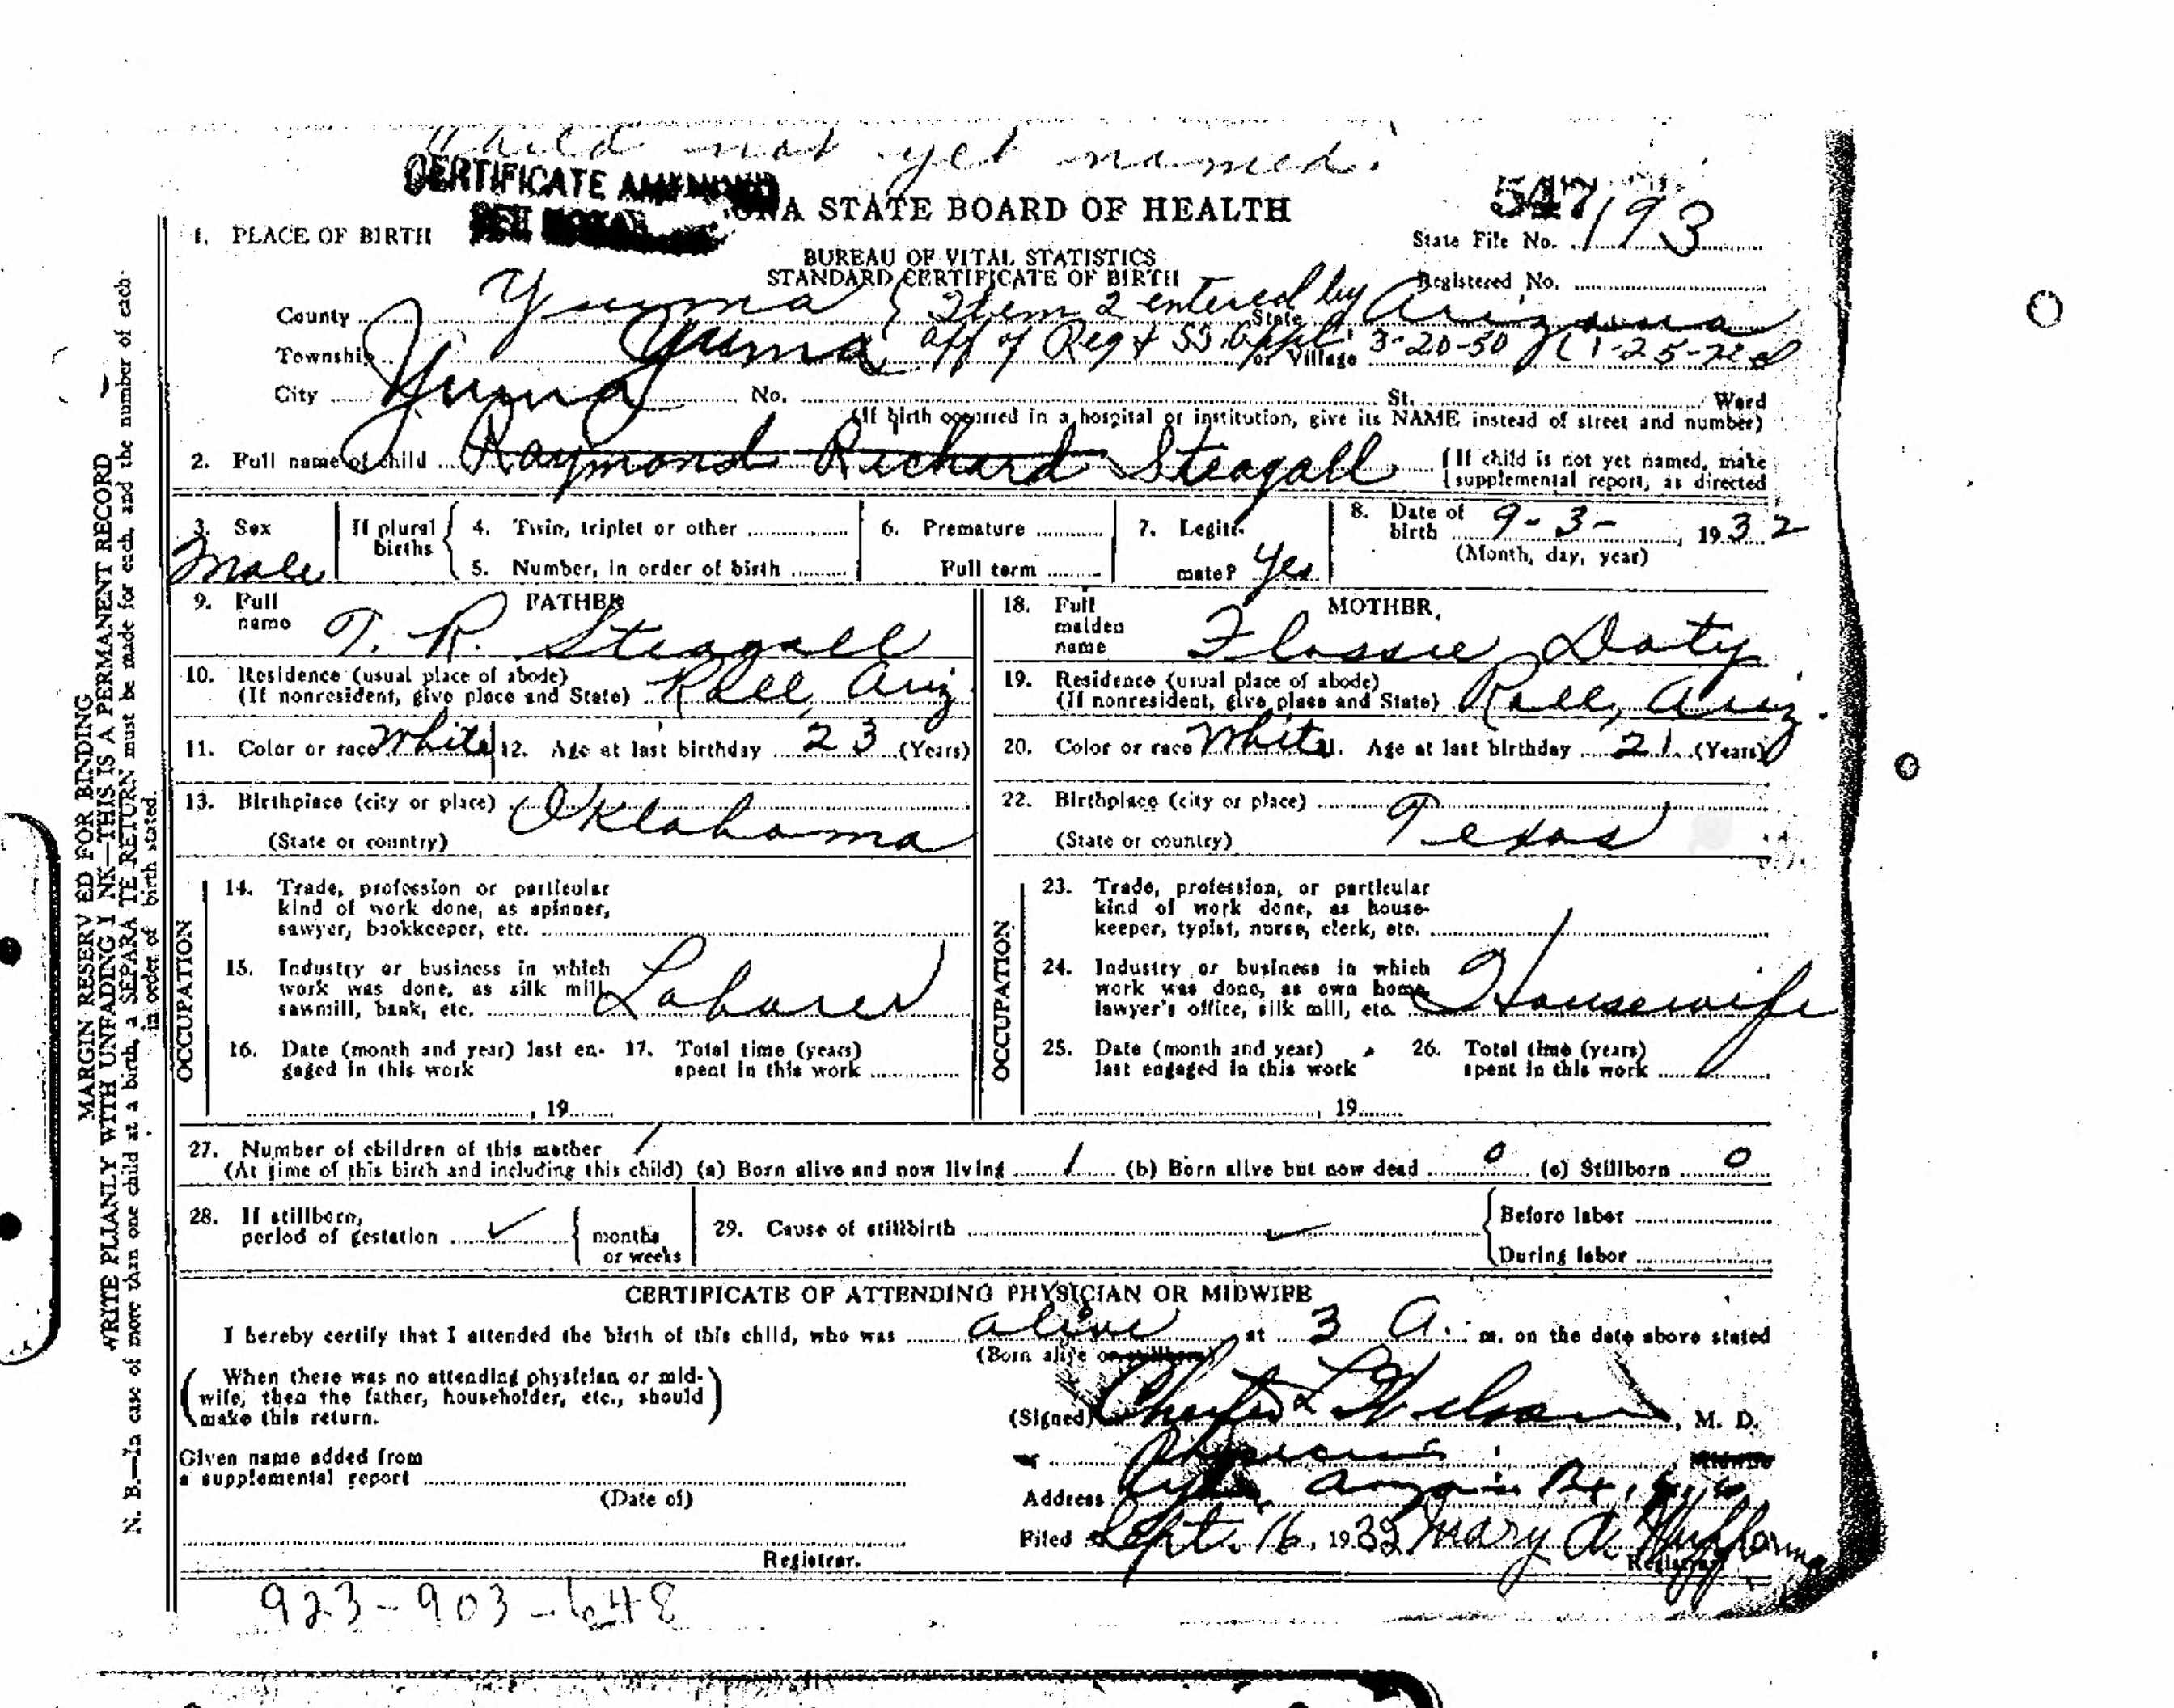 Child not yet named.
CERTIFICATE AMENDED
547
ONA STATE BOARD OF HEALTH
1. PLACE OF BIRTH
State File No. 193
BUREAU OF VITAL STATISTICS
STANDARD CERTIFICATE OF BIRTH
Registered No.
County Yuma State Arizona
Item 2 entered by
Township Yuma or Village
aff of Reg & SS. Appl. 3-20-50
City Yuma No. St. Ward
(If birth occurred in a hospital or institution, give its NAME instead of street and number)
2. Full name of child Raymond Richard Steagall {If child is not yet named, make supplemental report, as directed
3. Sex Male
If plural births { 4. Twin, triplet or other
5. Number, in order of birth
6. Premature
Full term
7. Legitimate? Yes
8. Date of birth 9-3-, 1932
(Month, day, year)
FATHER
9. Full name T. R. Steagall
10. Residence (usual place of abode)
(If nonresident, give place and State) Roll, Ariz.
11. Color or race White 12. Age at last birthday 23 (Years)
13. Birthplace (city or place) Oklahoma
(State or country)
OCCUPATION
14. Trade, profession or particular
kind of work done, as spinner,
sawyer, bookkeeper, etc.
15. Industry or business in which
work was done, as silk mill,
sawmill, bank, etc. Laborer
16. Date (month and year) last en-
gaged in this work
, 19
17. Total time (years)
spent in this work
MOTHER
18. Full maiden name Flossie Doty
19. Residence (usual place of abode)
(If nonresident, give place and State) Roll, Ariz.
20. Color or race White 21. Age at last birthday 21 (Years)
22. Birthplace (city or place) Texas
(State or country)
OCCUPATION
23. Trade, profession, or particular
kind of work done, as house-
keeper, typist, nurse, clerk, etc.
24. Industry or business in which
work was done, as own home,
lawyer's office, silk mill, etc. Housewife
25. Date (month and year)
last engaged in this work
, 19
26. Total time (years)
spent in this work
27. Number of children of this mother 1
(At time of this birth and including this child) (a) Born alive and now living 1 (b) Born alive but now dead 0 (c) Stillborn 0
28. If stillborn,
period of gestation { months
or weeks
29. Cause of stillbirth { Before labor
During labor
CERTIFICATE OF ATTENDING PHYSICIAN OR MIDWIFE
I hereby certify that I attended the birth of this child, who was alive at 3 A. m. on the date above stated
(Born alive or stillborn)
(When there was no attending physician or mid-
wife, then the father, householder, etc., should
make this return.)
(Signed) L Wilson, M. D.
Given name added from
a supplemental report
(Date of)
Physician
Address
Filed Sept. 16, 1932 Mary A.
Registrar.
Registrar.
923-903-648
MARGIN RESERVED FOR BINDING
WRITE PLIANLY WITH UNFADING INK—THIS IS A PERMANENT RECORD
N. B.—In case of more than one child at a birth, a SEPARATE RETURN must be made for each, and the number of each
in order of birth stated.